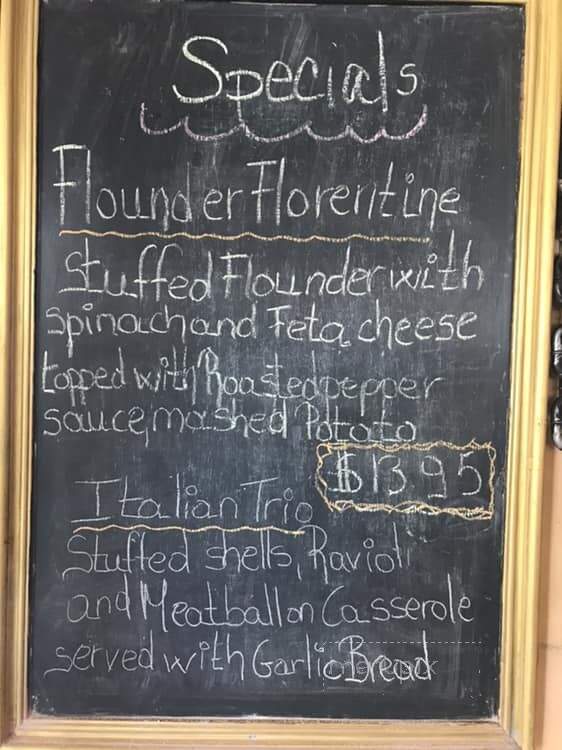 Specials
Flounder Florentine
Stuffed Flounder with
spinach and Feta cheese
topped with Roasted pepper
sauce, mashed Potato
$13 95
Italian Trio
Stuffed shells, Ravioli
and Meatball on Casserole
served with Garlic Bread